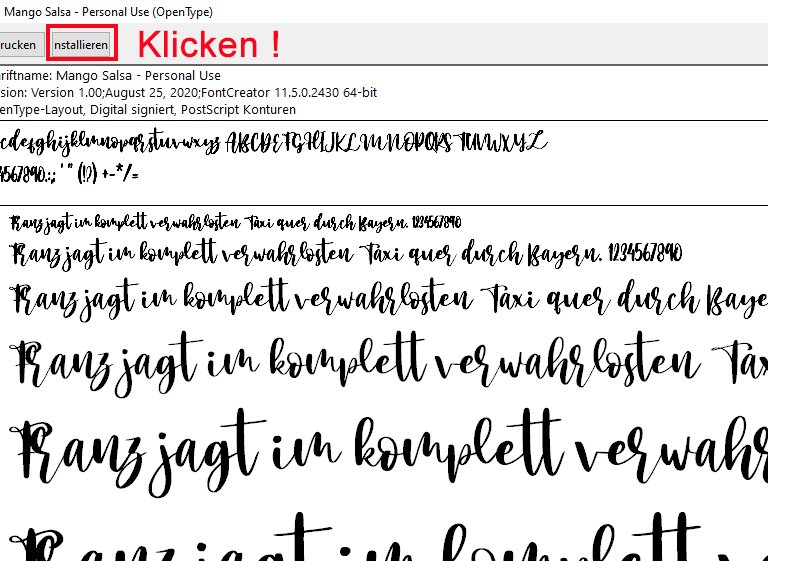 Mango Salsa - Personal Use (OpenType)
rucken nstallieren Klicken !
riftname: Mango Salsa - Personal Use
sion: Version 1.00;August 25, 2020;FontCreator 11.5.0.2430 64-bit
enType-Layout, Digital signiert, PostScript Konturen
cdefghijklmnopqrstuvwxyz ABCDEFGHIJKLMNOPQRSTUVWXYZ
4567890.:; ' " (!?) +-*/=
Franz jagt im komplett verwahrlosten Taxi quer durch Bayern. 1234567890
Franz jagt im komplett verwahrlosten Taxi quer durch Bayern. 1234567890
Franz jagt im komplett verwahrlosten Taxi quer durch Baye
Franz jagt im komplett verwahrlosten Tax
Franz jagt im komplett verwahr